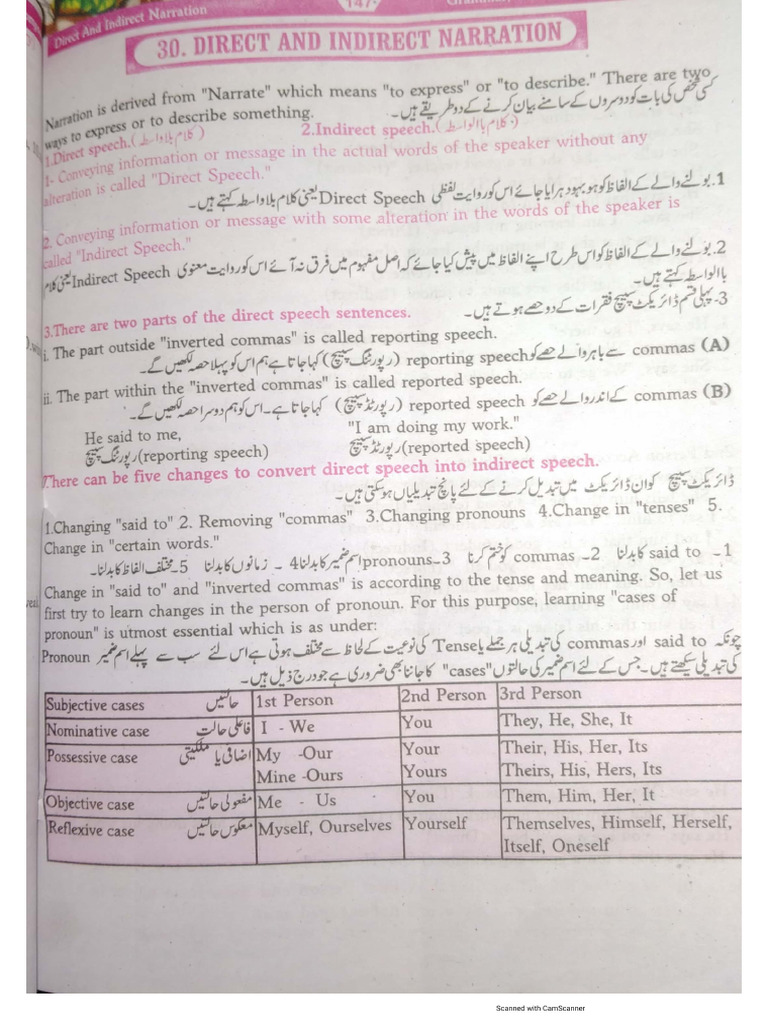 Direct And Indirect Narration
147
30. DIRECT AND INDIRECT NARRATION
Narration is derived from "Narrate" which means "to express" or "to describe." There are two
ways to express or to describe something. کسی شخص کی بات کو دوسروں کے سامنے بیان کرنے کے دو طریقے ہیں۔
1.Direct speech.(کلام بلاواسطہ) 2.Indirect speech.(کلام بالواسطہ)
1- Conveying information or message in the actual words of the speaker without any
alteration is called "Direct Speech."
1۔ بولنے والے کے الفاظ کو ہو بہو دہرایا جائے اس کو روایت لفظی Direct Speech یعنی کلام بلاواسطہ کہتے ہیں۔
2. Conveying information or message with some alteration in the words of the speaker is
called "Indirect Speech."
2۔ بولنے والے کے الفاظ کو اس طرح اپنے الفاظ میں پیش کیا جائے کہ اصل مفہوم میں فرق نہ آئے اس کو روایت معنوی Indirect Speech یعنی کلام
بالواسطہ کہتے ہیں۔
3.There are two parts of the direct speech sentences. 3۔ پہلی قسم ڈائریکٹ سپیچ فقرات کے دو حصے ہوتے ہیں۔
i. The part outside "inverted commas" is called reporting speech.
(A) commas سے باہر والے حصے کو reporting speech (رپورٹنگ سپیچ) کہا جاتا ہے ہم اس کو پہلا حصہ لکھیں گے۔
ii. The part within the "inverted commas" is called reported speech.
(B) commas کے اندر والے حصے کو reported speech (رپورٹڈ سپیچ) کہا جاتا ہے۔ اس کو ہم دوسرا حصہ لکھیں گے۔
He said to me, "I am doing my work."
رپورٹنگ سپیچ(reporting speech) رپورٹڈ سپیچ(reported speech)
There can be five changes to convert direct speech into indirect speech.
ڈائریکٹ سپیچ کو ان ڈائریکٹ میں تبدیل کرنے کے لئے پانچ تبدیلیاں ہو سکتی ہیں۔
1.Changing "said to" 2. Removing "commas" 3.Changing pronouns 4.Change in "tenses" 5.
Change in "certain words."
1۔ said to کا بدلنا 2۔ commas کو ختم کرنا 3۔pronouns اسم ضمیر کا بدلنا 4۔ زمانوں کا بدلنا 5۔ مختلف الفاظ کا بدلنا۔
Change in "said to" and "inverted commas" is according to the tense and meaning. So, let us
first try to learn changes in the person of pronoun. For this purpose, learning "cases of
pronoun" is utmost essential which is as under:
چونکہ said to اور commas کی تبدیلی ہر جملے یا Tense کی نوعیت کے لحاظ سے مختلف ہوتی ہے اس لئے سب سے پہلے اسم ضمیر Pronoun
کی تبدیلی سیکھتے ہیں۔ جس کے لئے اسم ضمیر کی حالتوں "cases" کا جاننا بھی ضروری ہے جو درج ذیل ہیں۔
Subjective cases حالتیں 1st Person 2nd Person 3rd Person
Nominative case فاعلی حالت I - We You They, He, She, It
Possessive case اضافی یا ملکیتی My -Our Your Their, His, Her, Its
Mine -Ours Yours Theirs, His, Hers, Its
Objective case مفعولی حالتیں Me - Us You Them, Him, Her, It
Reflexive case معکوس حالتیں Myself, Ourselves Yourself Themselves, Himself, Herself,
Itself, Oneself
Scanned with CamScanner